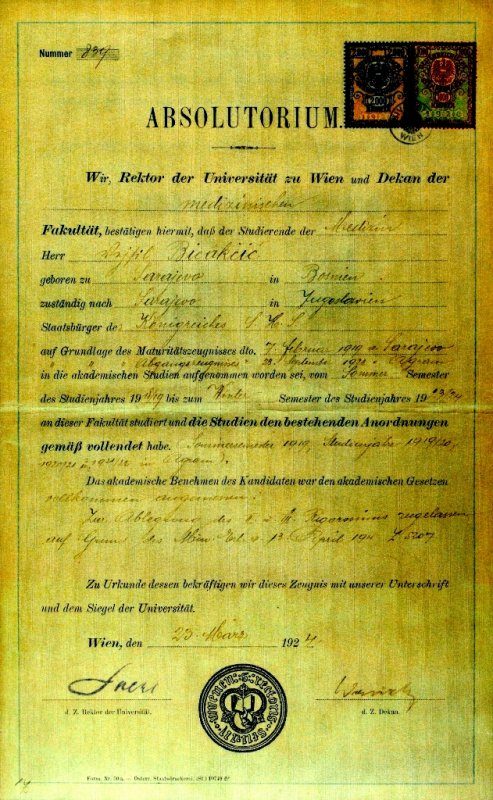 Nummer 839
ABSOLUTORIUM.
Wir, Rektor der Universität zu Wien und Dekan der
medizinischen
Fakultät, bestätigen hiermit, daß der Studierende der Medizin
Herr Bičakčić
geboren zu Sarajevo in Bosnien
zuständig nach Sarajevo in Jugoslavien
Staatsbürger des Königreiches S. H. S.
auf Grundlage des Maturitätszeugnisses dto. 7. Februar 1919 Sarajevo
Abgangszeugnisses 28. September Agram
in die akademischen Studien aufgenommen worden sei, vom Sommer Semester
des Studienjahres 19 bis zum Winter Semester des Studienjahres 1923/24
an dieser Fakultät studiert und die Studien den bestehenden Anordnungen
gemäß vollendet habe. Sommersemester 1919, Studienjahre 1919/20,
1920/21 in Agram.
Das akademische Benehmen des Kandidaten war den akademischen Gesetzen
vollkommen angemessen.
Zur Ablegung des Rigorosums zugelassen
auf Grund des Min. Erl. v. 13. April
Zu Urkunde dessen bekräftigen wir dieses Zeugnis mit unserer Unterschrift
und dem Siegel der Universität.
Wien, den 23. März 1924
d. Z. Rektor der Universität.
d. Z. Dekan.